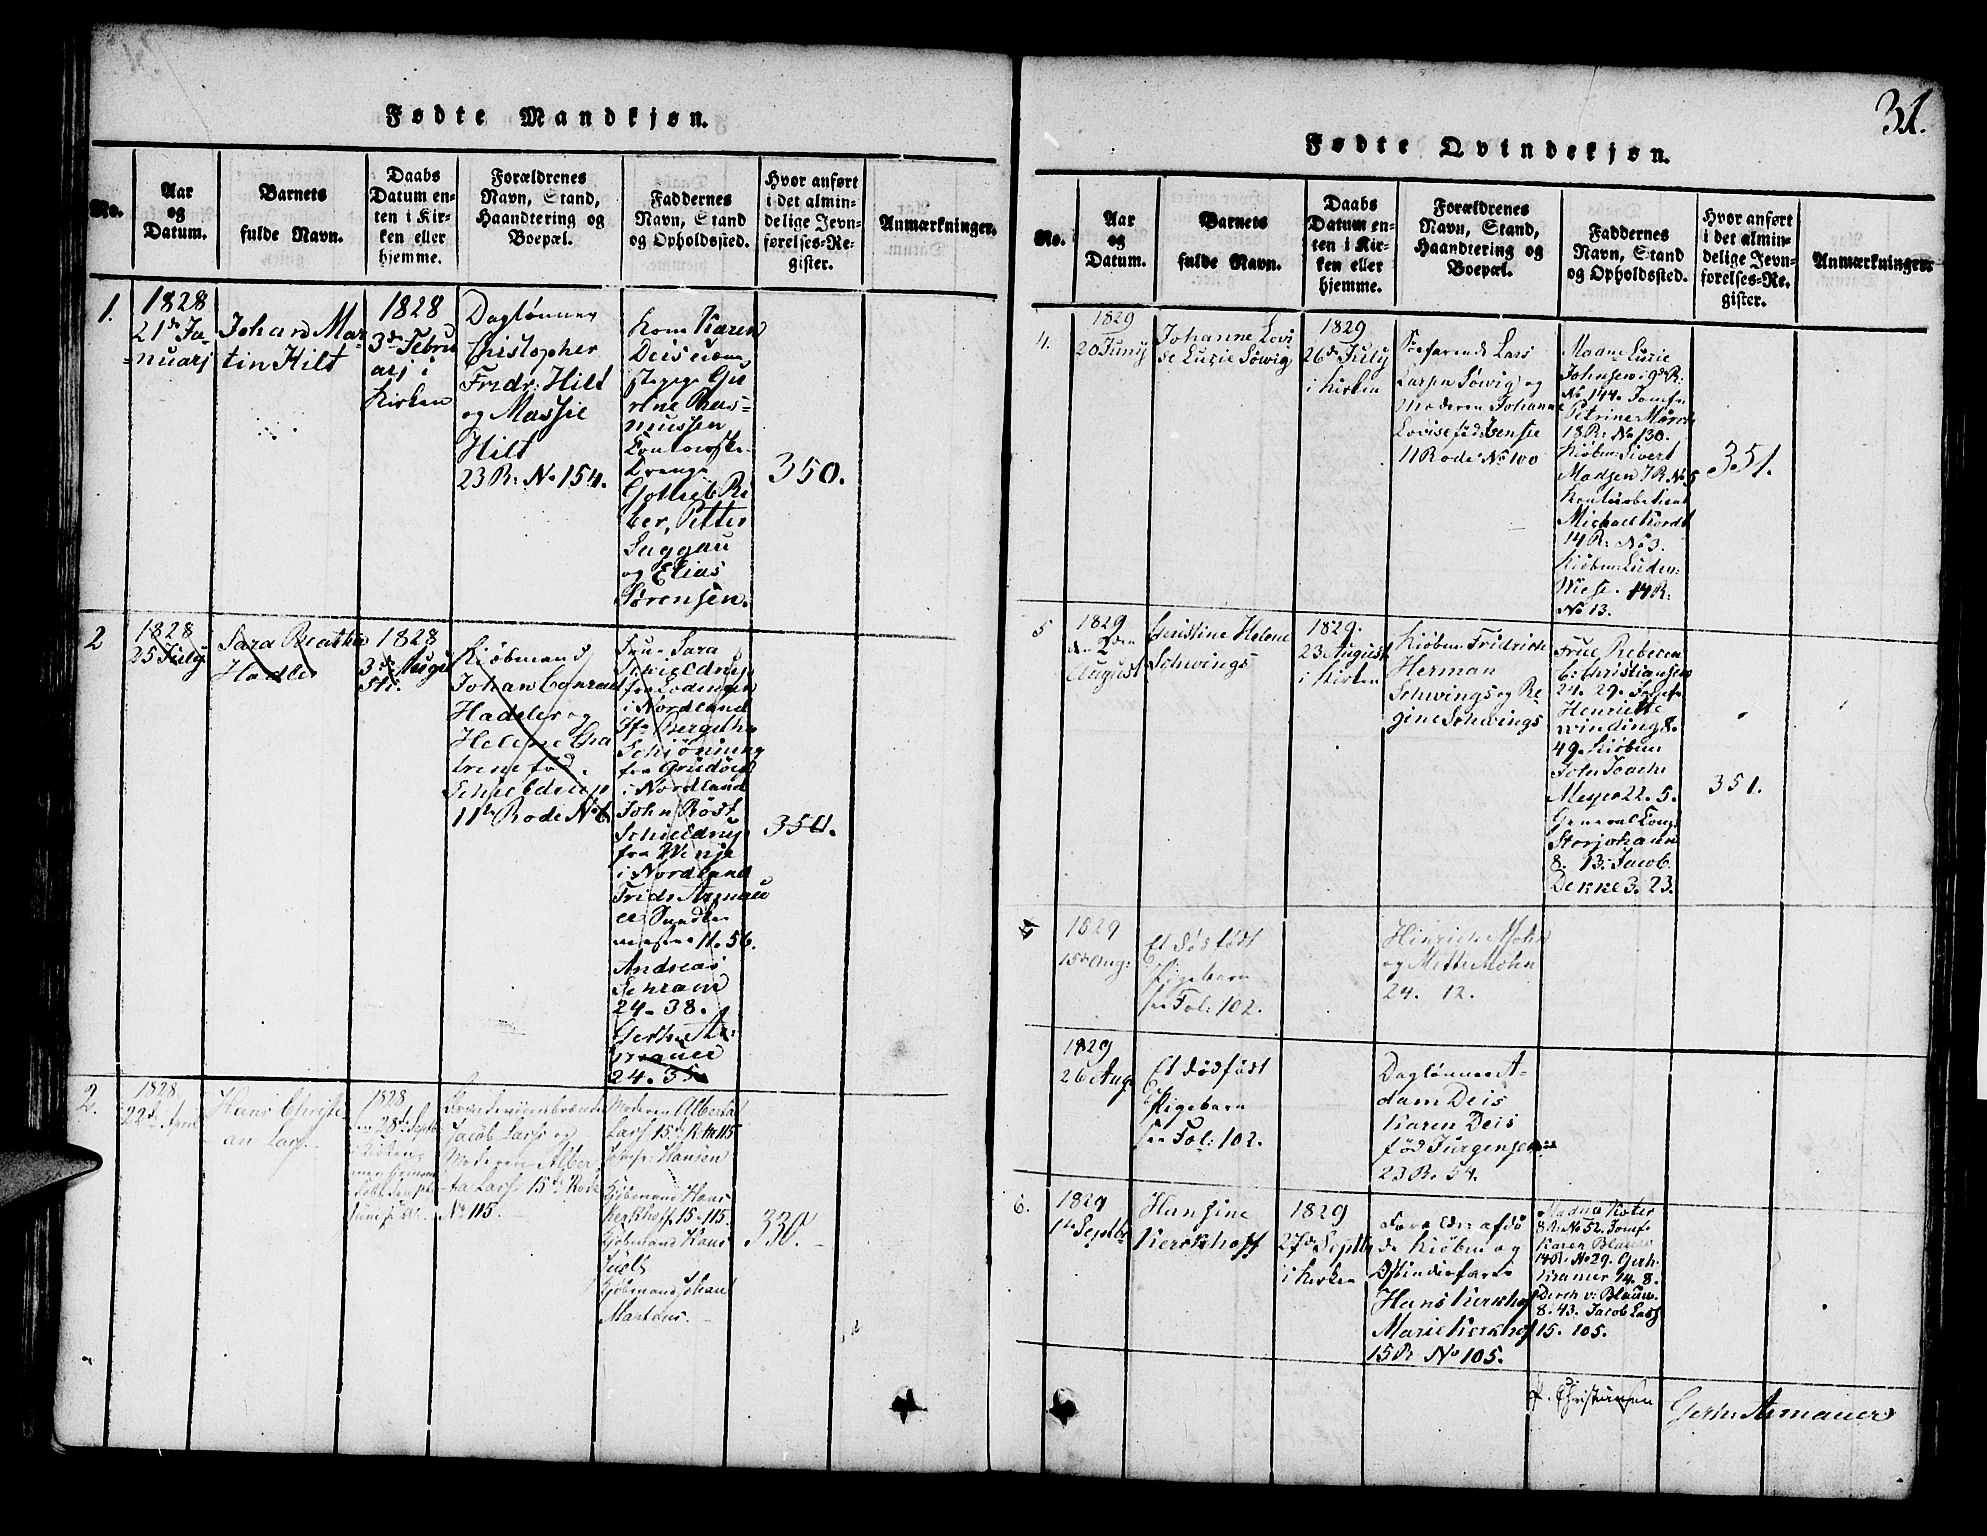 Fødte Mandkjøn.
No.
Aar
og
Datum.
Barnets
fulde Navn.
Daabs
Datum en-
ten i Kir-
ken eller
hjemme.
Forældrenes
Navn, Stand,
Haandtering og
Boepæl.
Faddernes
Navn, Stand
og Opholdssted.
Hvor anført
i det almin-
delige Jevn-
førelses-Re-
gister.
Anmærkninger.
1.
1828
21de Ja-
nuarj
Johan Mar-
tin Hilt
1828
3de Febru
arj i
Kirken
Daglønner
Christopher
Fridr: Hilt
og Massie
Hilt
23 R. No 154.
Kone Karen
Deis
Rasmussen
Drenge
Gotlieb Ri
ber, Petter
Saggau
og Elias
Sørensen.
350.
2
1828
25 July
Sara Beathe
Hadler
1828
3de Augu
sti.
Kiöbmand
Johan Conrad
Hadeler og
Helene Cha
trine fød
Schieldrup
11te Rode No 6
Frue Sara
Schieldrup
fra Lodingen
i Nordland
Schiöning
fra
i Nordland
John Rost
Schieldrup
fra Wenje
i Nordland
Fridr Armauer
11. 56.
Andreas
Schram
24. 38.
Gerth Ar-
mauer
24. 35
350.
2.
1828
22de April
Hans Christi
an Lars.
1828
28de Septb
i Kirken
Jacob Lars og
Moderen Alber
ta Lars 15de Rode
No 115.
Moderen Alberta
Lars 15de R No 115
Jomfr: Hansen
Kjøbmand Hans
Kerkhoff 15. 115.
Kjøbmand Hans
Kjøbmand Johan
Martens.
330.
31.
Fødte Qvindekjøn.
No.
Aar
og
Datum.
Barnets
fulde Navn.
Daabs
Datum en-
ten i Kir-
ken eller
hjemme.
Forældrenes
Navn, Stand,
Haandtering og
Boepæl.
Faddernes
Navn, Stand
og Opholdssted.
Hvor anført
i det almin-
delige Jevn-
førelses-Re-
gister.
Anmærkninger.
4.
1829
20 Juny
Johanne Lovi
se Lucie Söwig
1829
26de July
i Kirken
Söefarende Lars
Larsen Söwig og
Moderen Johanne
Lovise fød Jensse
11 Rode No 100
Madme Lucie
Johnsen i 9de R:
No 144. Jomfr
Petrine Mörch
18 R: No 130.
Kiöbm: Sivert
Madsen 7 R. No 5
Kontoirbetient
Michael Kordt
14 R: No 3.
Kiöbm: Luder
Wiese. 14 R:
No 13.
351.
5
1829
den 2den
August
Christine Helene
Schwings
1829.
23 August
i Kirken
Kiöbm: Fridrich
Herman
Schwings og Re
gine Schwings
Frue Rebecca
C: Christiansen
24. 29. Jomfr
Henriette
Winding 8.
49. Kiöbm
John Joach:
Meyer 22. 5.
General Cons
Storjohann
8. 13. Jacob
Dekke 3. 23.
351.
1829
15de Aug:
Et dödfödt
Pigebarn
see Fol: 102.
Hinrich Mohn
og Mette Mohn
24. 12.
1829
26 Aug
Et dödfödt
Pigebarn
see Fol: 102.
Daglönner A-
dam Deis
Karen Deis
fød Jürgensen
23 R. 54.
6.
1829
1te Septbr
Hansine
Kerckhoff
1829
27de Septb
i Kirken
Forældre afdö
de Kiöbm og
Ostindiefarer
Hans Kerkhof
Marie Kerkhof
15 R No 105.
Madme Köter
8 R. No 52. Jomfr
Karen Blauw
14 R. No 29. Gerh.
Kramer 14. 8.
Derch v: Blauw.
8. 43. Jacob Lars
15. 105.
P. Christiansen
Gerh: Armauer